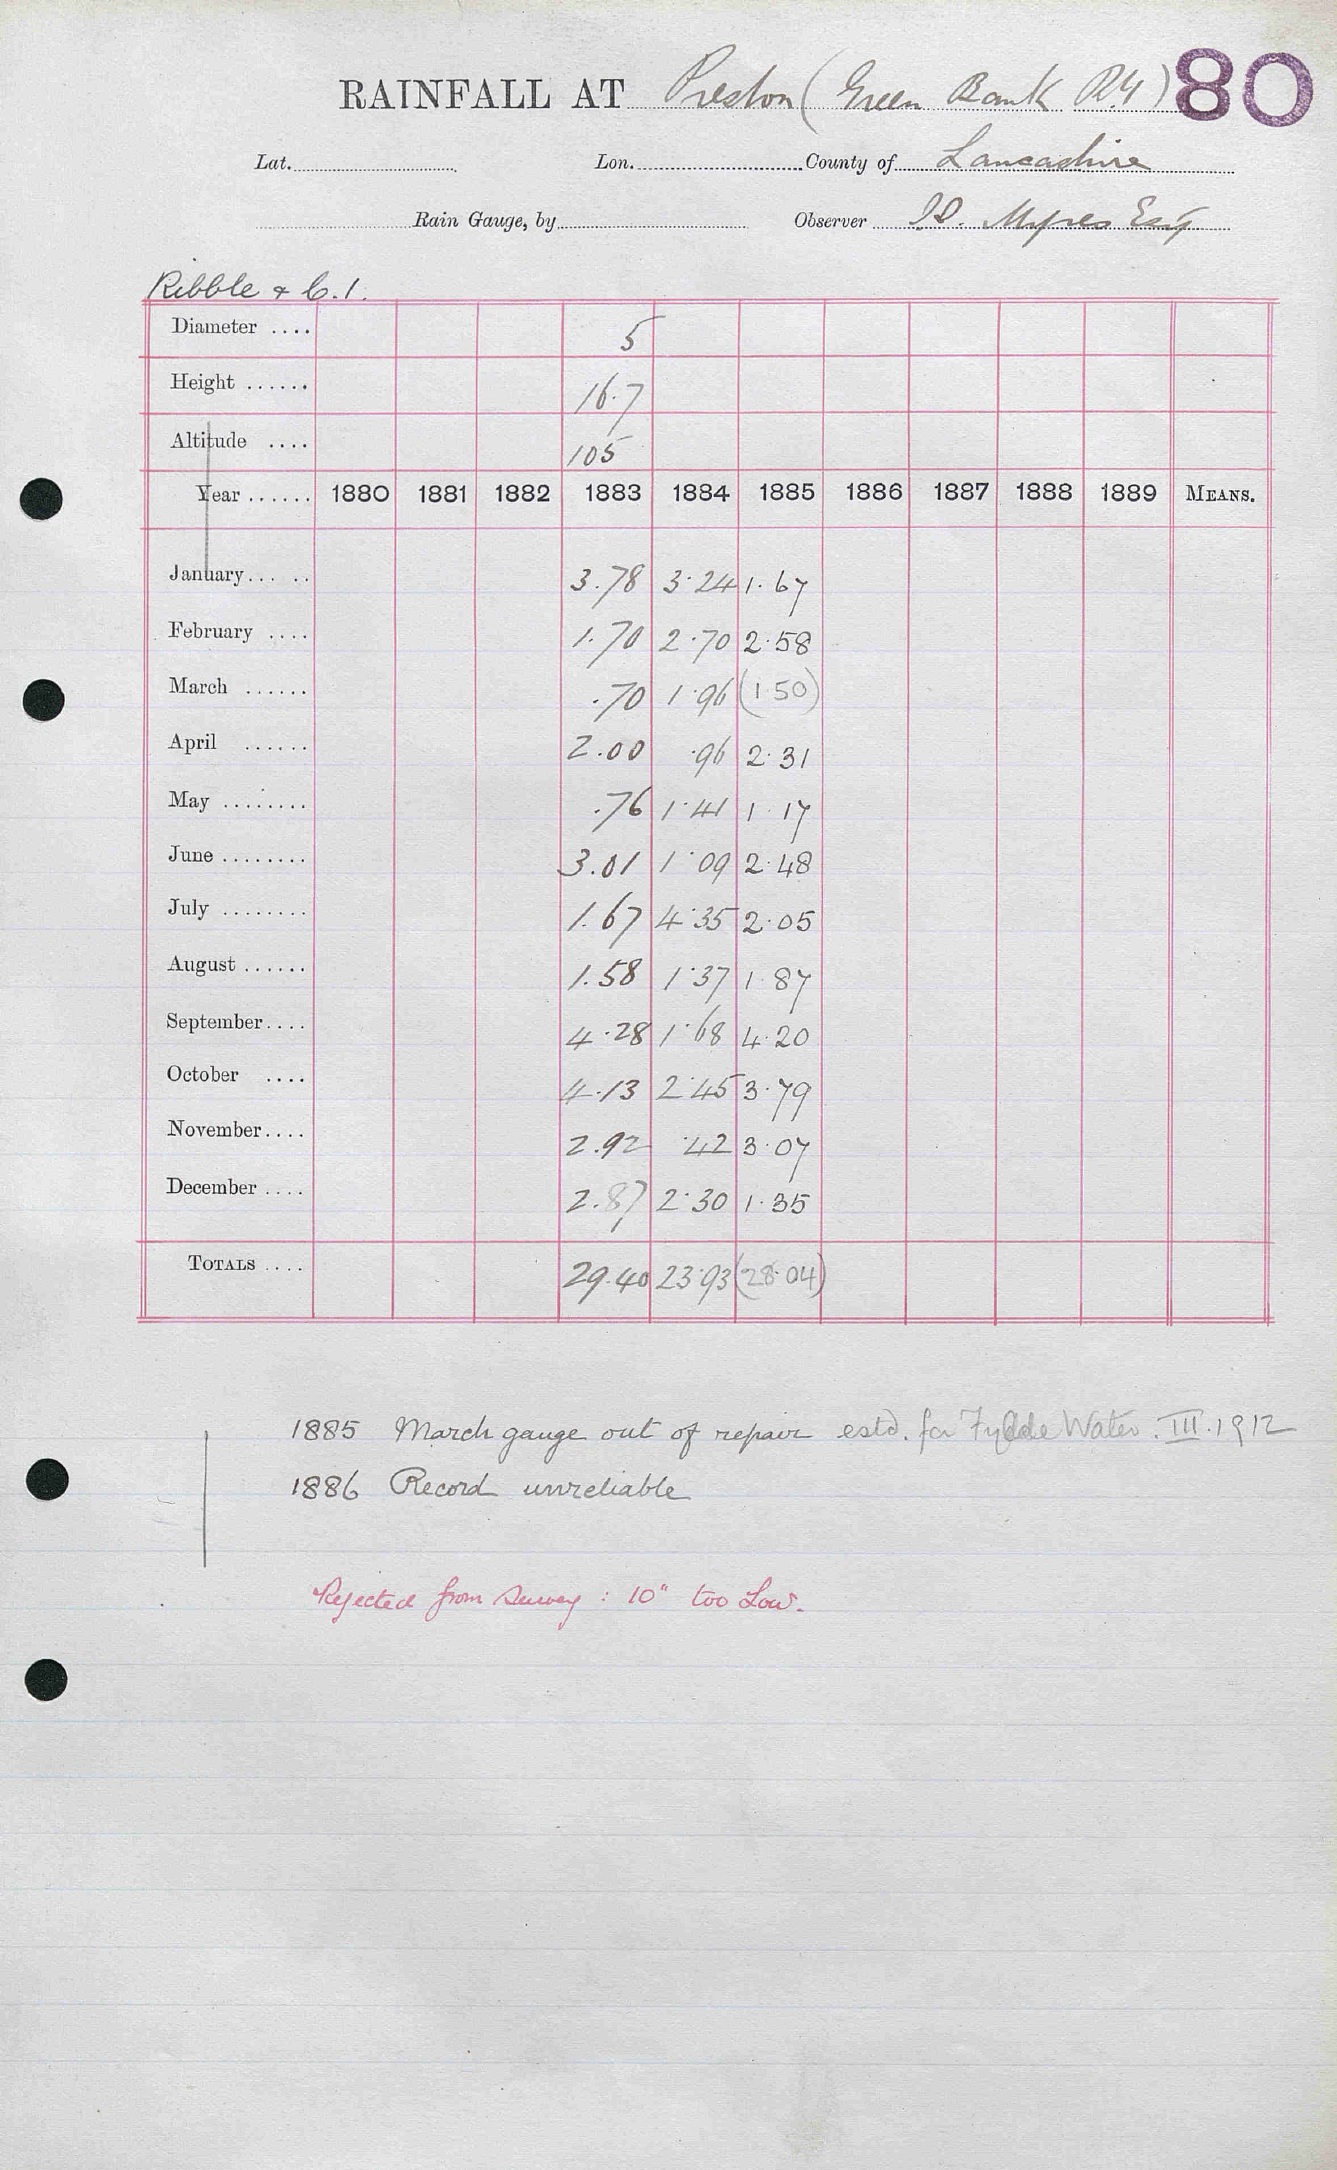 RAINFALL AT Preston (Green Bank Ry) 80
Lat. Lon. County of Lancashire
Rain Gauge, by Observer Myres Esq
Ribble & C.1.
Diameter .... 5
Height ...... 16.7
Altitude .... 105
Year ...... 1880 1881 1882 1883 1884 1885 1886 1887 1888 1889 MEANS.
January... .. 3.78 3.24 1.67
February .... 1.70 2.70 2.58
March ...... .70 1.96 (1.50)
April ...... 2.00 .96 2.31
May ........ .76 1.41 1.17
June ........ 3.01 1.09 2.48
July ........ 1.67 4.35 2.05
August ...... 1.58 1.37 1.87
September.... 4.28 1.68 4.20
October .... 4.13 2.45 3.79
November.... 2.92 .42 3.07
December .... 2.87 2.30 1.35
TOTALS .... 29.40 23.93 (28.04)
1885 March gauge out of repair estd. for Fylde Water. III.1912
1886 Record unreliable
Rejected from Survey : 10" too Low.